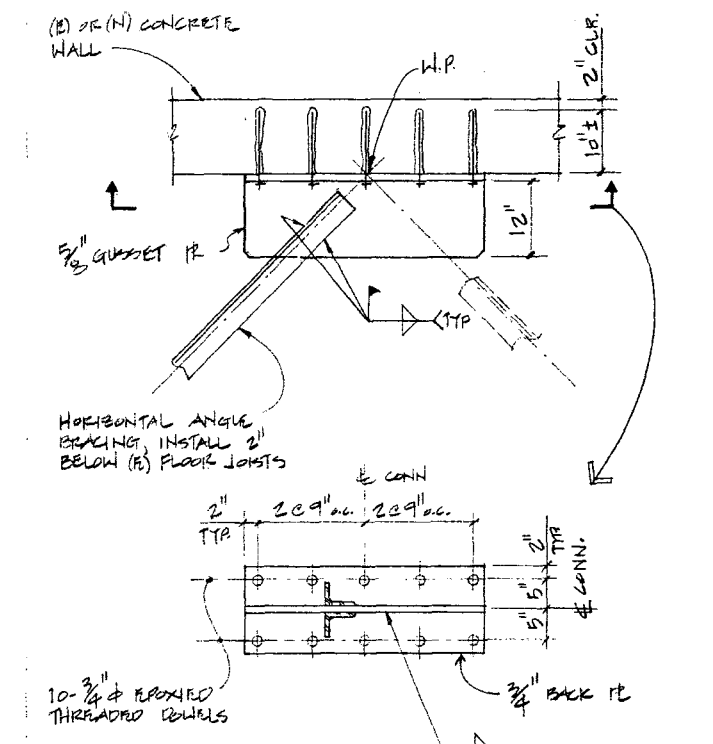 (E) OR (N) CONCRETE
WALL
W.P.
2" CLR.
10"±
12"
5/8" GUSSET PL
TYP
HORIZONTAL ANGLE
BRACING, INSTALL 2"
BELOW (E) FLOOR JOISTS
℄ CONN
2"
TYP.
2@9"o.c.
2@9"o.c.
2"
TYP
5"
5"
℄ CONN.
10-3/4"ϕ EPOXIED
THREADED DOWELS
3/4" BACK PL